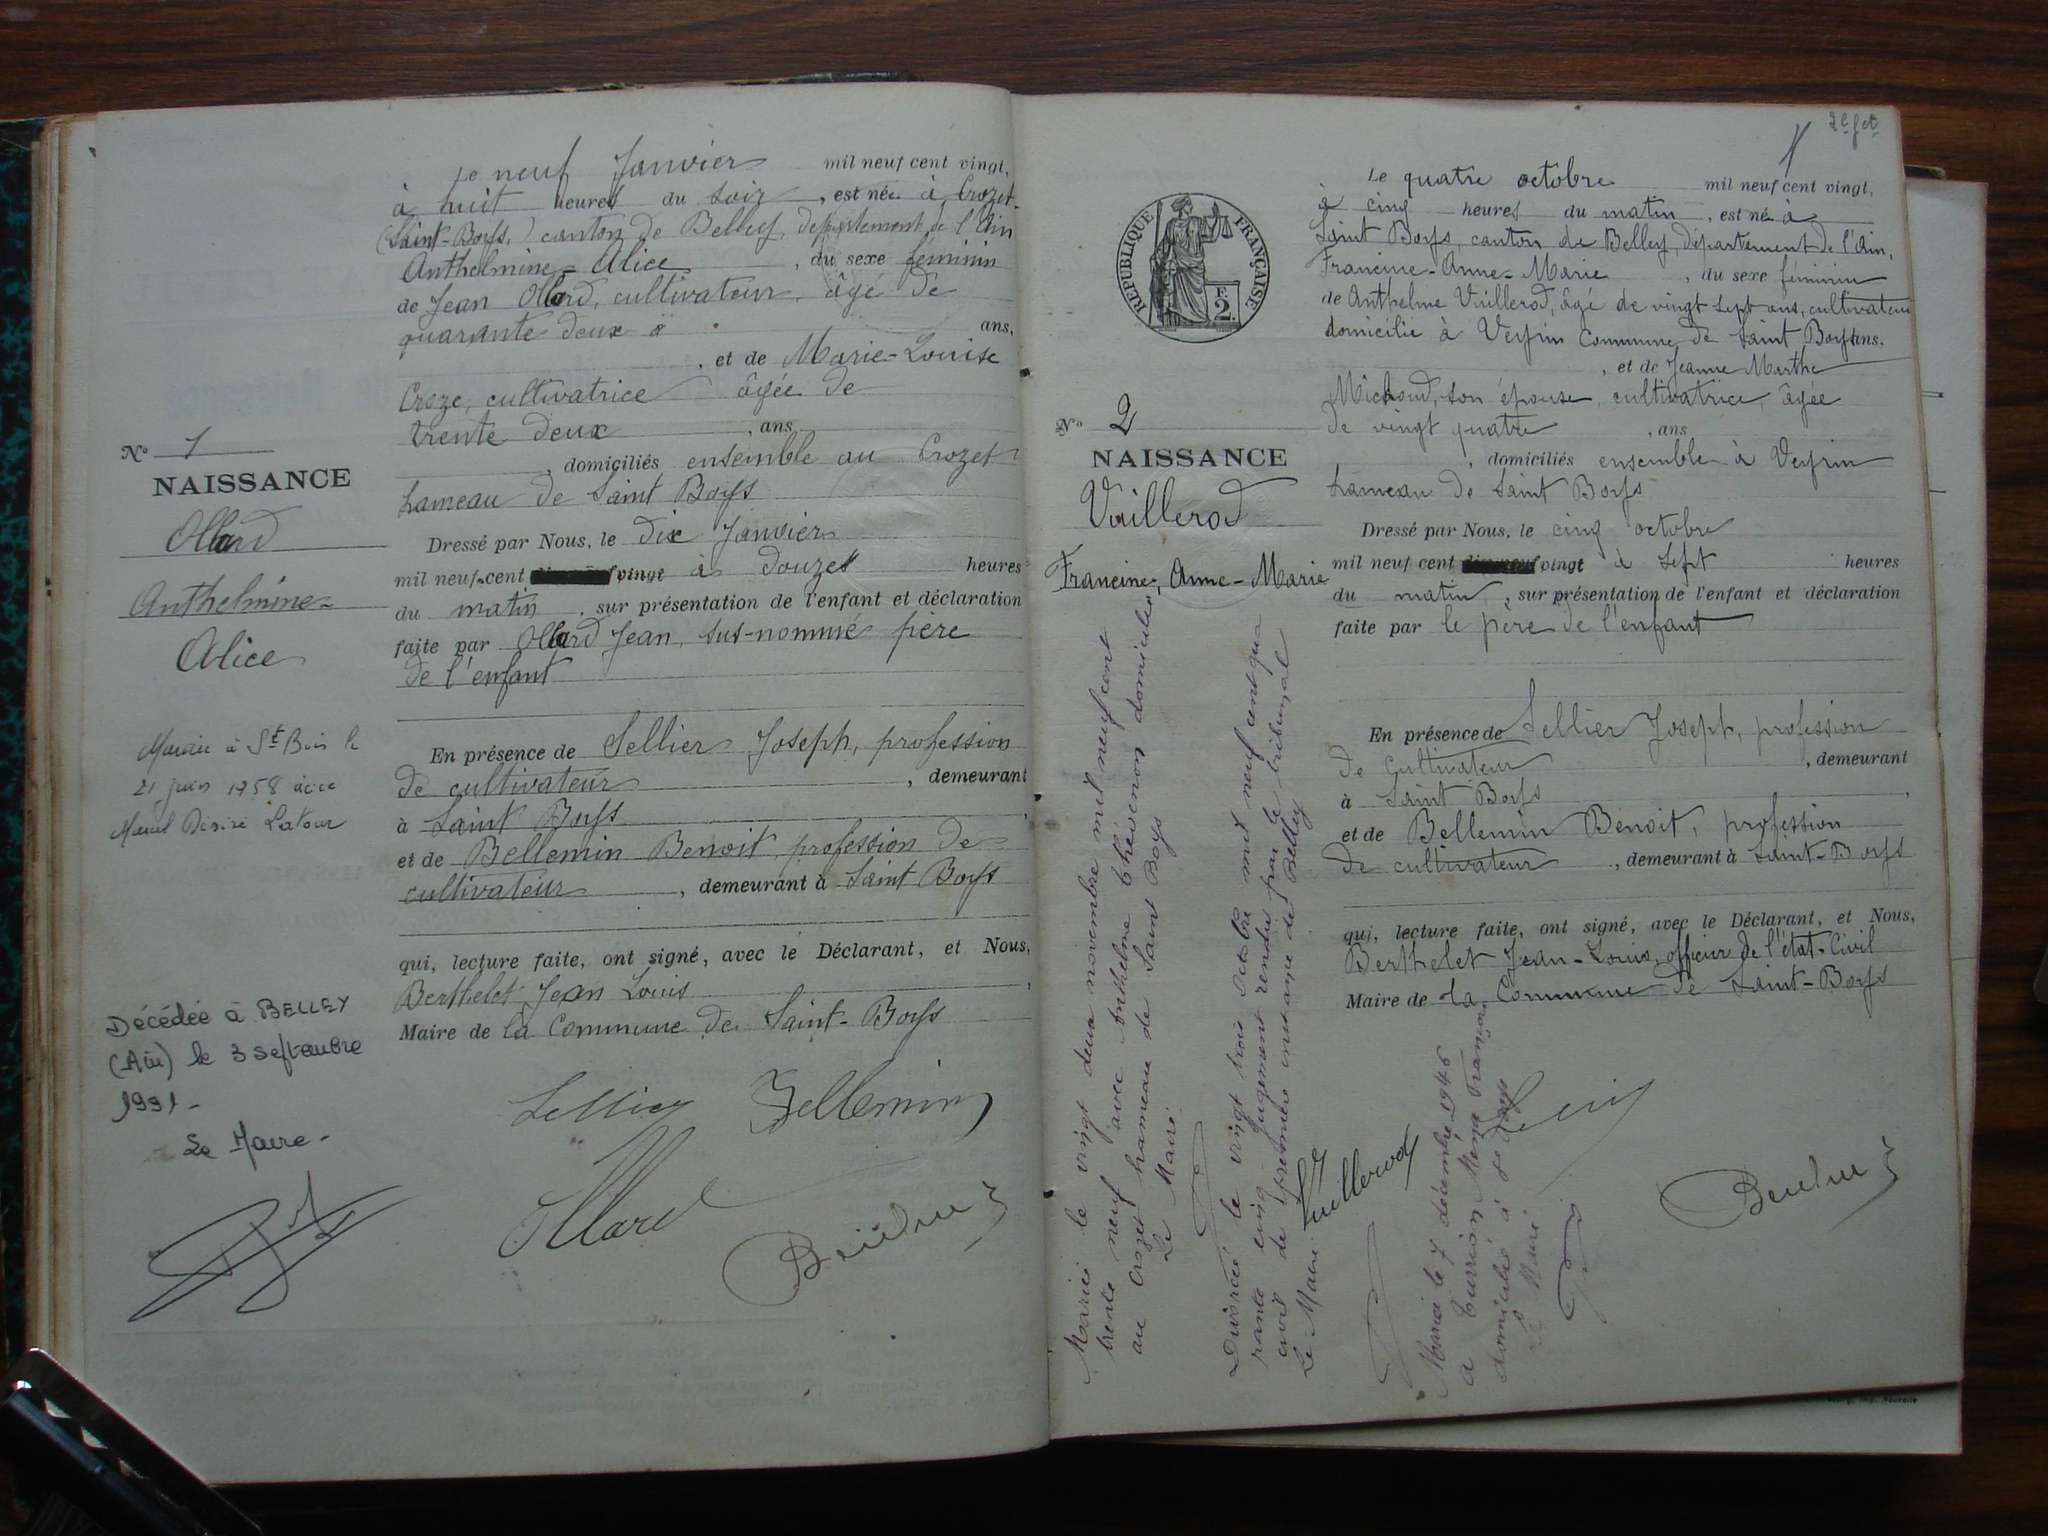 Le neuf Janvier mil neuf cent vingt,
à huit heures du soir, est née à Crozet-
(Saint-Boys,) canton de Belley, département de l'Ain
Anthelmine-Alice, du sexe féminin
de Jean Ollard, cultivateur, âgé de
quarante deux ans,
, et de Marie-Louise
Croze, cultivatrice âgée de
trente deux, ans,
, domiciliés ensemble au Crozet
hameau de Saint Boys
Dressé par Nous, le dix Janvier
mil neuf cent vingt à douze heures
du matin, sur présentation de l'enfant et déclaration
faite par Ollard Jean, sus-nommé père
de l'enfant
En présence de Sellier Joseph, profession
de cultivateur, demeurant
à Saint Boys,
et de Bellemin Benoit, profession de
cultivateur, demeurant à Saint Boys
qui, lecture faite, ont signé, avec le Déclarant, et Nous,
Berthelet Jean Louis,
Maire de la Commune de Saint-Boys
Sellier Bellemin
Ollard
No 1
NAISSANCE
Ollard
Anthelmine-
Alice
Mariée à St Bois le
21 juin 1958 avec
Marcel Désiré Latour
Décédée à BELLEY
(Ain) le 3 septembre
1991-
Le Maire-
2e fet
Le quatre octobre mil neuf cent vingt,
à cinq heures du matin, est née à
Saint Boys, canton de Belley, département de l'Ain,
Francine-Anne-Marie, du sexe féminin
de Anthelme Vuillerod, âgé de vingt sept ans, cultivateur
domicilié à Veyrin Commune de Saint Boys ans,
, et de Jeanne Marthe
Michoud, son épouse, cultivatrice, âgée
de vingt quatre, ans
, domiciliés ensemble à Veyrin
hameau de Saint Boys
Dressé par Nous, le cinq octobre
mil neuf cent vingt à Sept heures
du matin, sur présentation de l'enfant et déclaration
faite par le père de l'enfant
En présence de Sellier Joseph, profession
de cultivateur, demeurant
à Saint Boys,
et de Bellemin Benoit, profession
de cultivateur, demeurant à Saint-Boys
qui, lecture faite, ont signé, avec le Déclarant, et Nous,
Berthelet Jean-Louis, officier de l'état-Civil
Maire de la Commune de Saint-Boys
Vuillerod
RÉPUBLIQUE FRANÇAISE
F.
2.
No 2
NAISSANCE
Vuillerod
Francine, Anne-Marie
Mariée le vingt deux novembre mil neuf cent
trente neuf avec Anthelme Thévenon domicilié
au Crozet hameau de Saint Boys
Le Maire
Divorcée le vingt trois Octobre mil neuf cent qua
rante cinq. Jugement rendu par le tribunal
civil de première instance de Belley
Le Maire
Marié le 7 décembre 1946
à
domicilié à
Le Maire